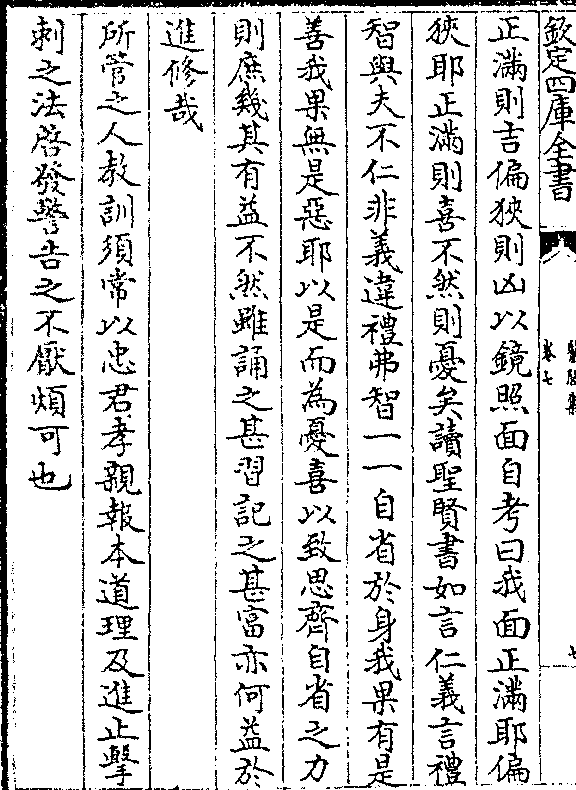 欽定四庫全書
卷七
正滿則吉偏狹則凶以鏡照面自考曰我面正滿耶偏
狹耶正滿則喜不然則憂矣讀聖賢書如言仁義言禮
智與夫不仁非義違禮弗智一一自省於身我果有是
善我果無是惡耶以是而為憂喜以致思齊自省之力
則庶幾其有益不然雖誦之甚習記之甚富亦何益於
進修哉
所管之人教訓須常以忠君孝親報本道理及進止擊
刺之法啓發警告之不厭煩可也